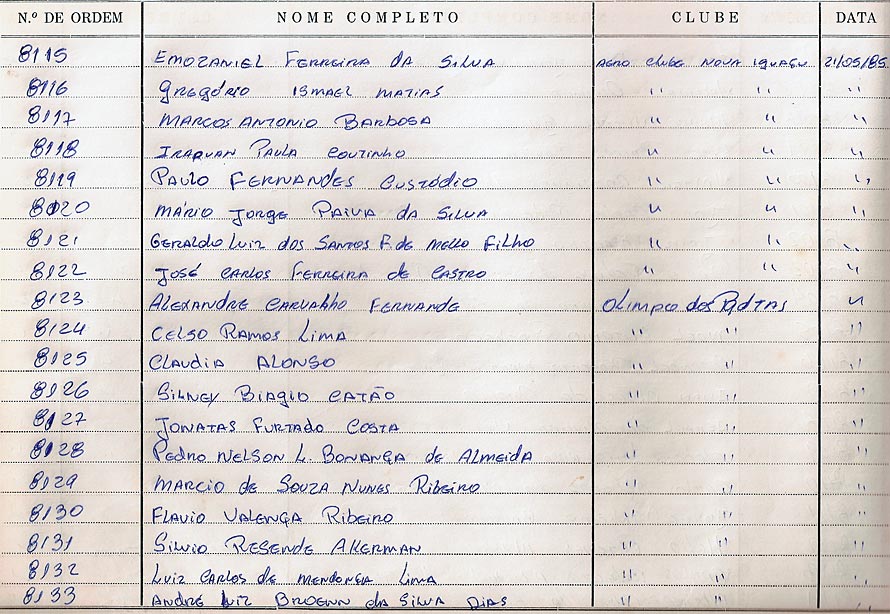 N.º DE ORDEM NOME COMPLETO CLUBE DATA
8115 EMOZANIEL FERREIRA DA SILVA AERO CLUBE NOVA IGUAÇU 21/05/85
8116 GREGÓRIO ISMAEL MATIAS " " "
8117 MARCOS ANTONIO BARBOSA " " "
8118 IRAQUAN PAULA COUTINHO " " "
8119 PAULO FERNANDES CUSTÓDIO " " "
8120 MÁRIO JORGE PAIVA DA SILVA " " "
8121 GERALDO LUIZ DOS SANTOS F. DE MELLO FILHO " " "
8122 JOSÉ CARLOS FERREIRA DE CASTRO " " "
8123 ALEXANDRE CARVALHO FERNANDE OLIMPCO DOS "
8124 CELSO RAMOS LIMA " " "
8125 CLAUDIA ALONSO " " "
8126 SILNEY BIAGIO CATÃO " " "
8127 JONATAS FURTADO COSTA " " "
8128 PEDRO NELSON L. BONANÇA DE ALMEIDA " " "
8129 MARCIO DE SOUZA NUNES RIBEIRO " " "
8130 FLAVIO VALENÇA RIBEIRO " " "
8131 SILVIO RESENDE AKERMAN " " "
8132 LUIZ CARLOS DE MENDONÇA LIMA " " "
8133 ANDRE LUIZ DA SILVA DIAS " " "